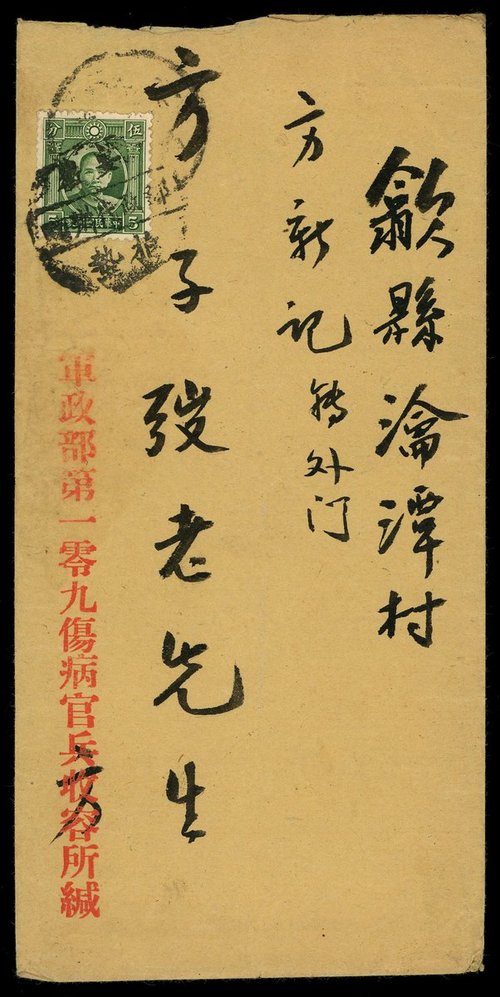 歙縣瀹潭村
方新记转外门
方子弢老先生
軍政部第一零九傷病官兵收容所緘
方
分 伍
5 5